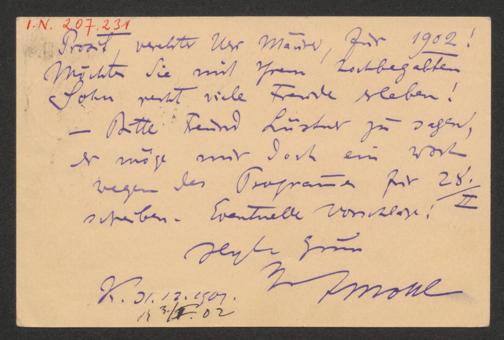 I.N. 207.231
Prosit, verehrter Herr Mandel, für 1902!
Möchten Sie mit Ihrem hochbegabten
Sohn recht viele Freude erleben!
— Bitte Freund Lüstner zu sagen,
er möge mir doch ein Wort
wegen des Programms für 28./II
schreiben. Eventuelle Vorschläge!
Herzl. Gruss
K. 31.12.1901.